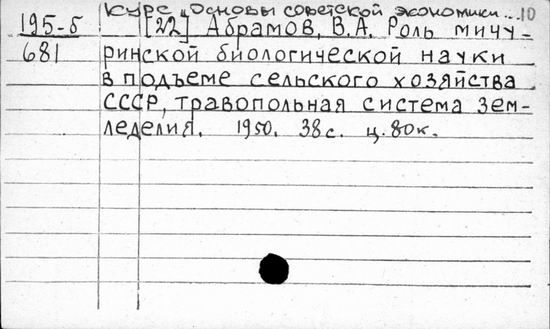 Курс „Основы советской экономики... 10
195-б [22] Абрамов, В.А. Роль мичу-
681 ринской биологической науки
в подъеме сельского хозяйства
СССР, травопольная система зем-
леделия. 1950. 38 с. ц. 80к.